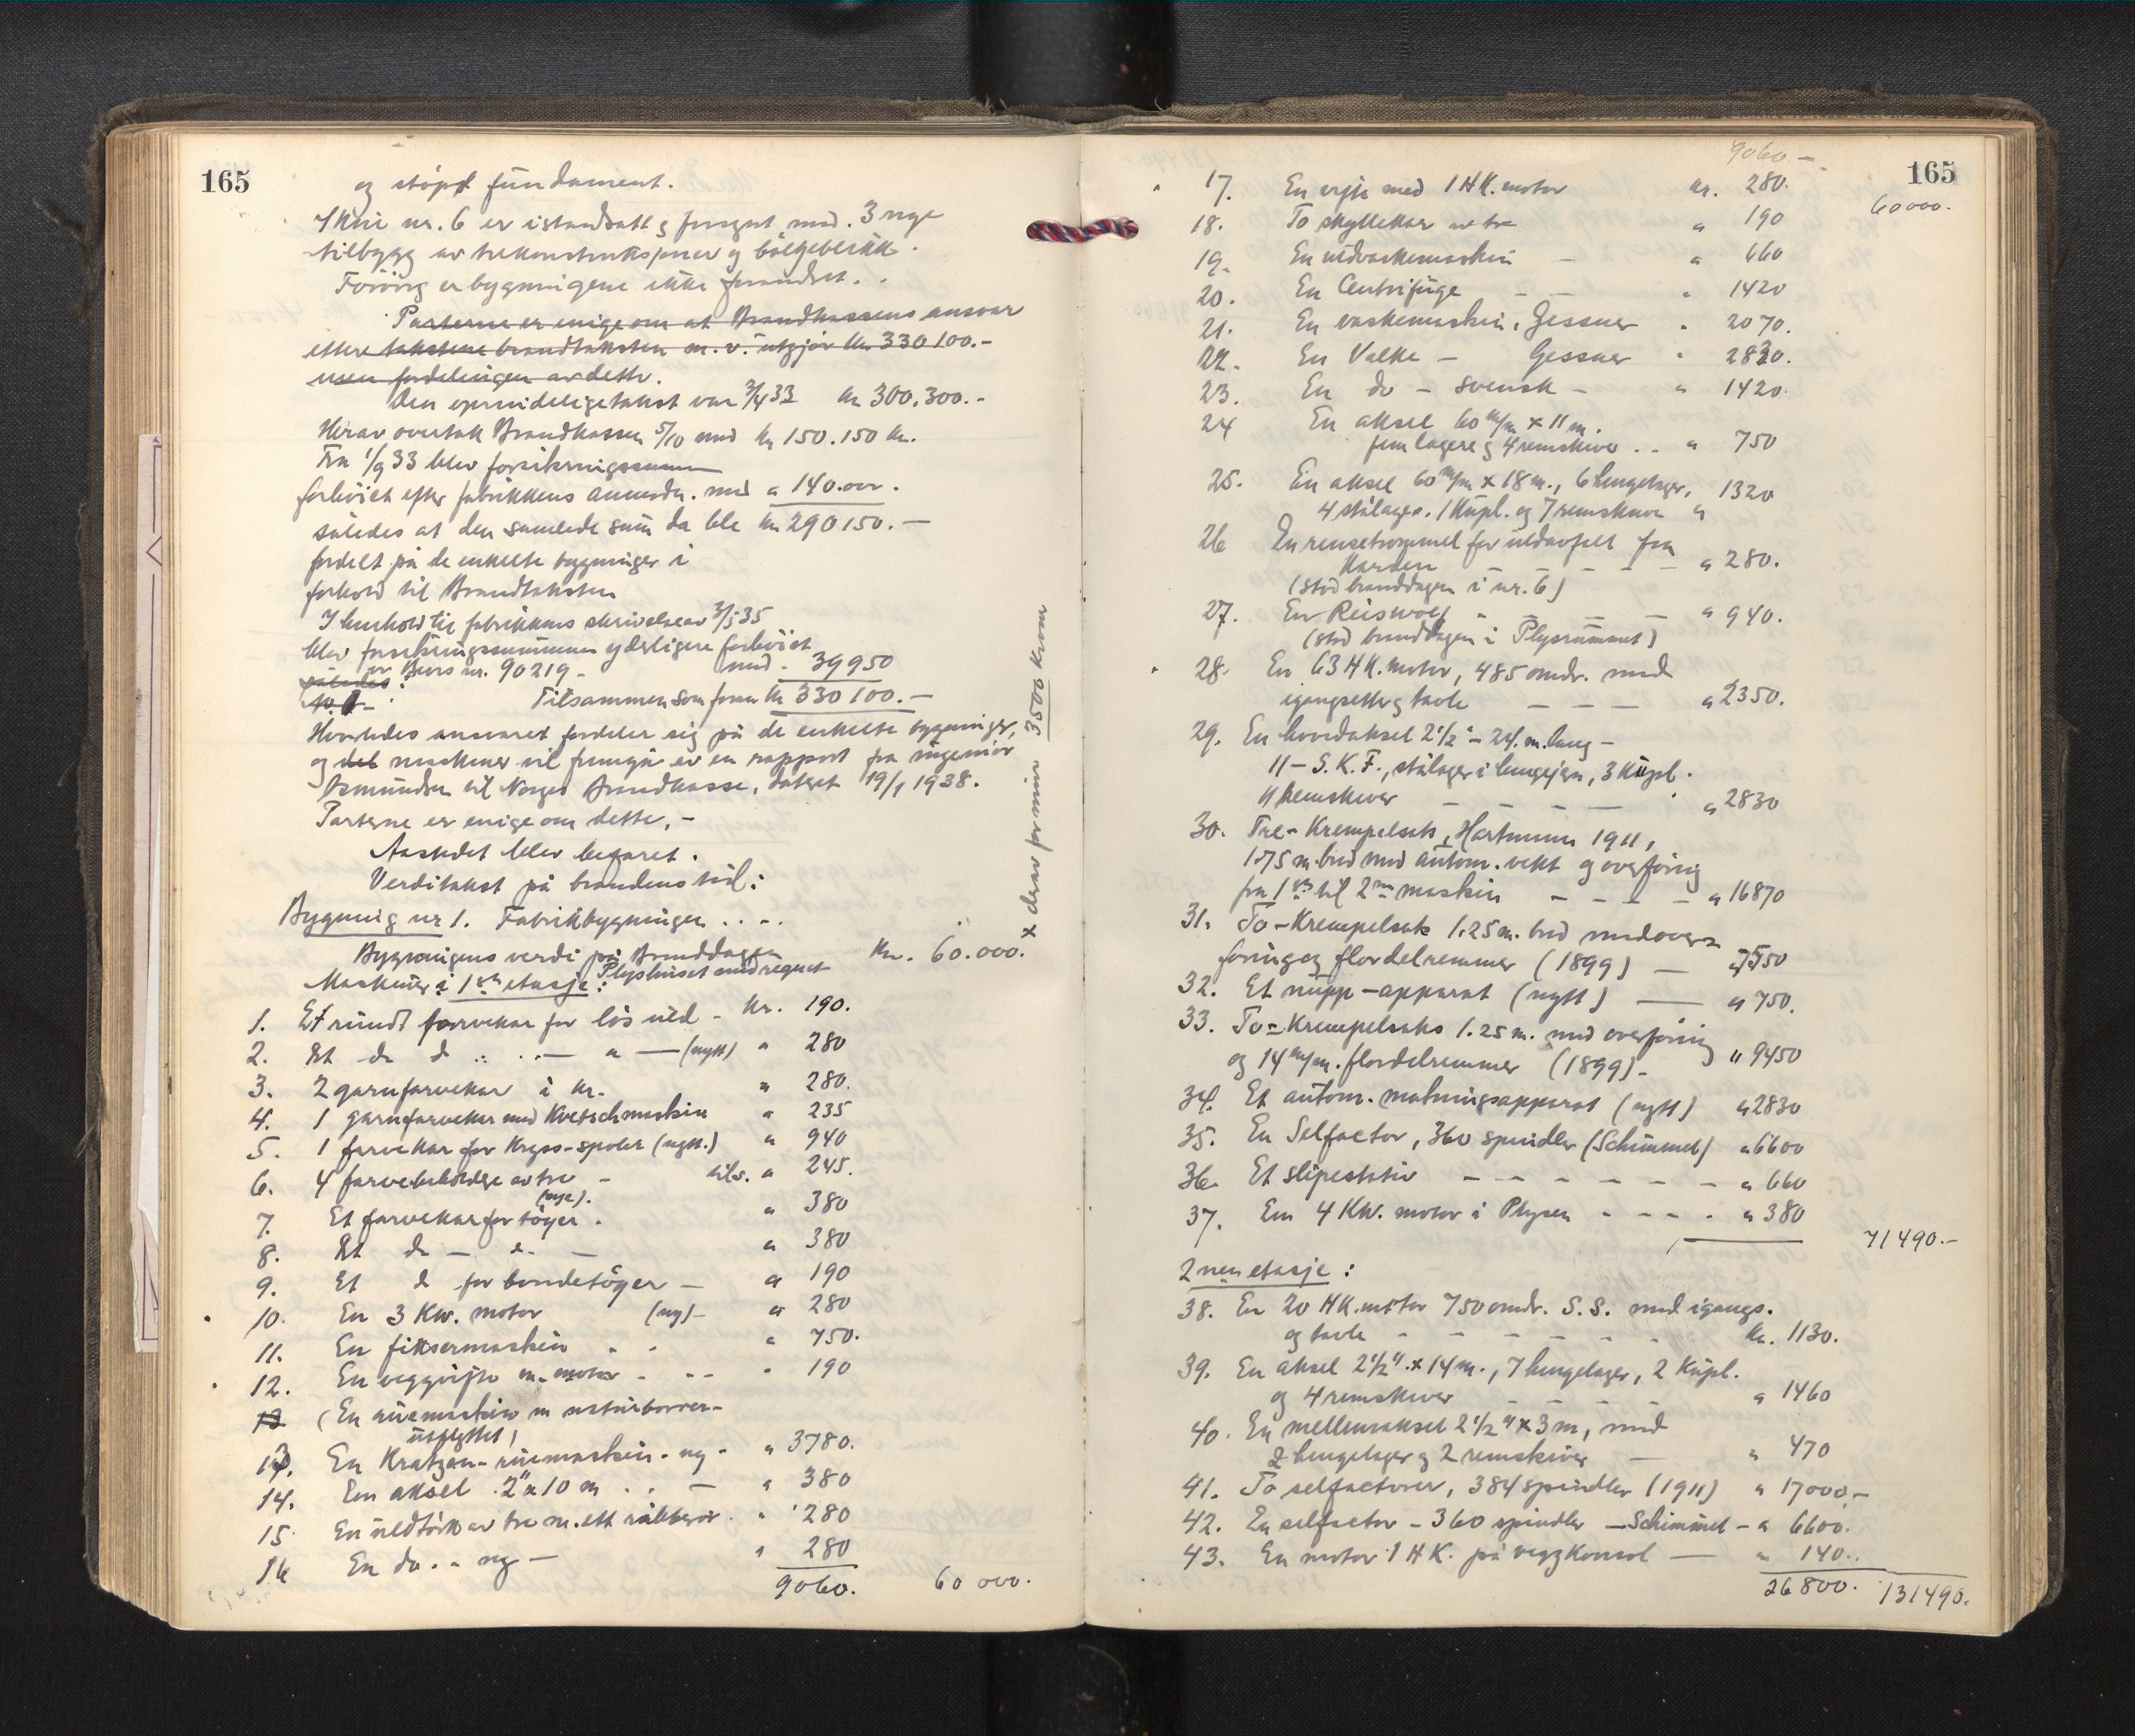 165
og støpt fundament.
Skur nr. 6 er istandsatt og forsynt med 3 nye
tilbygg av trekonstruksjoner og bølgeblikk.
Forøvrig er bygningene ikke forandret.
Parterne er enige om at Brandkassens ansvar
efter takstene brandtaksten m.v. utgjør kr. 330100.-
men fordelingen av dette.
Den oprindelige takst var 3/4 33 kr 300.300.-
Herav overtok Brandkassen 5/10 med kr 150.150 kr.
Fra 1/9 33 blev forsikringssummen
forhøiet efter fabrikkens anmodn. med " 140.000.
således at den samlede sum da ble kr 290150.-
fordelt på de enkelte bygninger i
forhold til Brandtaksten
I henhold til fabrikkens skrivelse av 3/5 35
blev forsikringssummen yderligere forhøiet
således: nr. 90219. med - 39950
Tilsammen som foran kr 330100.-
Hvorledes ansvaret fordeler sig på de enkelte bygninger,
og det maskiner vil fremgå av en rapport fra ingeniør
Osmundsen til Norges Brandkasse, datert 19/1 1938.
Parterne er enige om dette.-
Aastedet blev befaret.
Verditakst på brandens tid:
Bygning nr 1. Fabrikbygningen . . - -
Bygningens verdi på Branddagen Kr. 60.000.x
Plyshuset medregnet
Maskiner i 1ste etasje:
x derav for min 3500 kroner
1. Et rundt farvekar for løs uld - Kr. 190.
2. Et do d .. . - " - (nytt) " 280
3. 2 garnfarvekar à kr. " 280.
4. 1 garnfarvekar med Kvetschmaskin " 235
5. 1 farvekar for Kryss-spoler (nytt.) " 940
6. 4 farvebeholdere av tre - tils. " 245.
(nye).
7. Et farvekar for tøyer . " 380
8. Et do - d. - " 380
9. Et d for bondetøyer - " 190
10. En 3 Kw. motor (ny) - " 280
11. En fiksermaskin . . " 750.
12. En veggvifte m. motor - - - " 190
13 (En ruemaskin m naturborrer-
utflyttet)
13. En Kratzen-ruemaskin - ny - " 3780.
14. En aksel 2" x 10 m . . - " 380
15 En uldtørk av tre m. ett ribberør . " 280
16 En do . - ny - " 280
9060. 60 000.
165
9060 -
60000.
17. En ergje med 1 HK. motor kr. 280.
18. To skyllekar av tre " 190
19. En uldvaskemaskin - " 660
20. En Centrifuge - - " 1420
21. En vaskemaskin, Gessner " 2070.
22. En Valke - Gessner " 2830.
23. En do - svensk - " 1420.
24 En aksel 60 m/m x 11 m.
fem lagere og 4 remskiver . . " 750
25. En aksel 60 m/m x 18 m., 6 hengelager, 1320
4 stålager. 1 Kupl. og 7 remskiver "
26 En rensetrommel for uldavfall fra
Karden - - - - - " 280.
(stod branddagen i nr. 6)
27. En Reiswolf - - - - " 940.
(stod branddagen i Plysrummet)
28. En 63 HK. motor, 485 omdr. med
igangsetter og tavle - - - " 2350.
29. En hovedaksel 2 1/2" - 24. m. lang -
11 - S.K.F., stålager i hengejern, 3 Kupl.
11 Remskiver - - - - " 2830
30. Tre-Krempelsats, Hartmann 1911,
1.75 m. bred med autom. vekt og overføring
fra 1ste til 2nen maskin - - - - " 16870
31. To-Krempelsats 1.25 m. bred med over=
føring og flordelremmer (1899) - 7550
32. Et nupp-apparat (nytt) - " 750.
33. To=Krempelsats 1.25 m. med overføring
og 14 m/m. flordelremmer (1899) - " 9450
34. Et autom. matningsapparat (nytt) " 2830
35. En Selfactor, 360 spindler (Schimmel) " 6600
36. Et slipestativ - - - - - - - " 660
37. En 4 Kw. motor i Plysen - - - . " 380
71490.-
2nen etasje:
38. En 20 HK. motor 750 omdr. S.S. med igangs.
og tavle - - - - - - - Kr. 1130.
39. En aksel 2 1/2" x 14 m., 7 hengelager, 2 Kupl.
og 4 remskiver - - - - " 1460
40. En mellemaksel 2 1/2" x 3 m, med
2 hengelager og 2 remskiver - " 470
41. To selfactorer, 384 spindler (1911) " 17000.-
42. En selfactor - 360 spindler - Schimmel - " 6600.
43. En motor 1 HK. på veggkonsol - " 140..
26800. 131490.